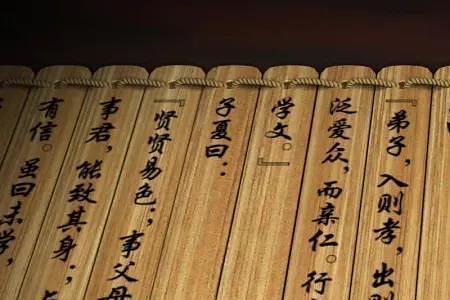 『弟子，入则孝，出
泛爱众，而亲仁。行
学文。』
子夏曰：
『贤贤易色；事父母
事君，能致其身；
有信。虽曰未学，